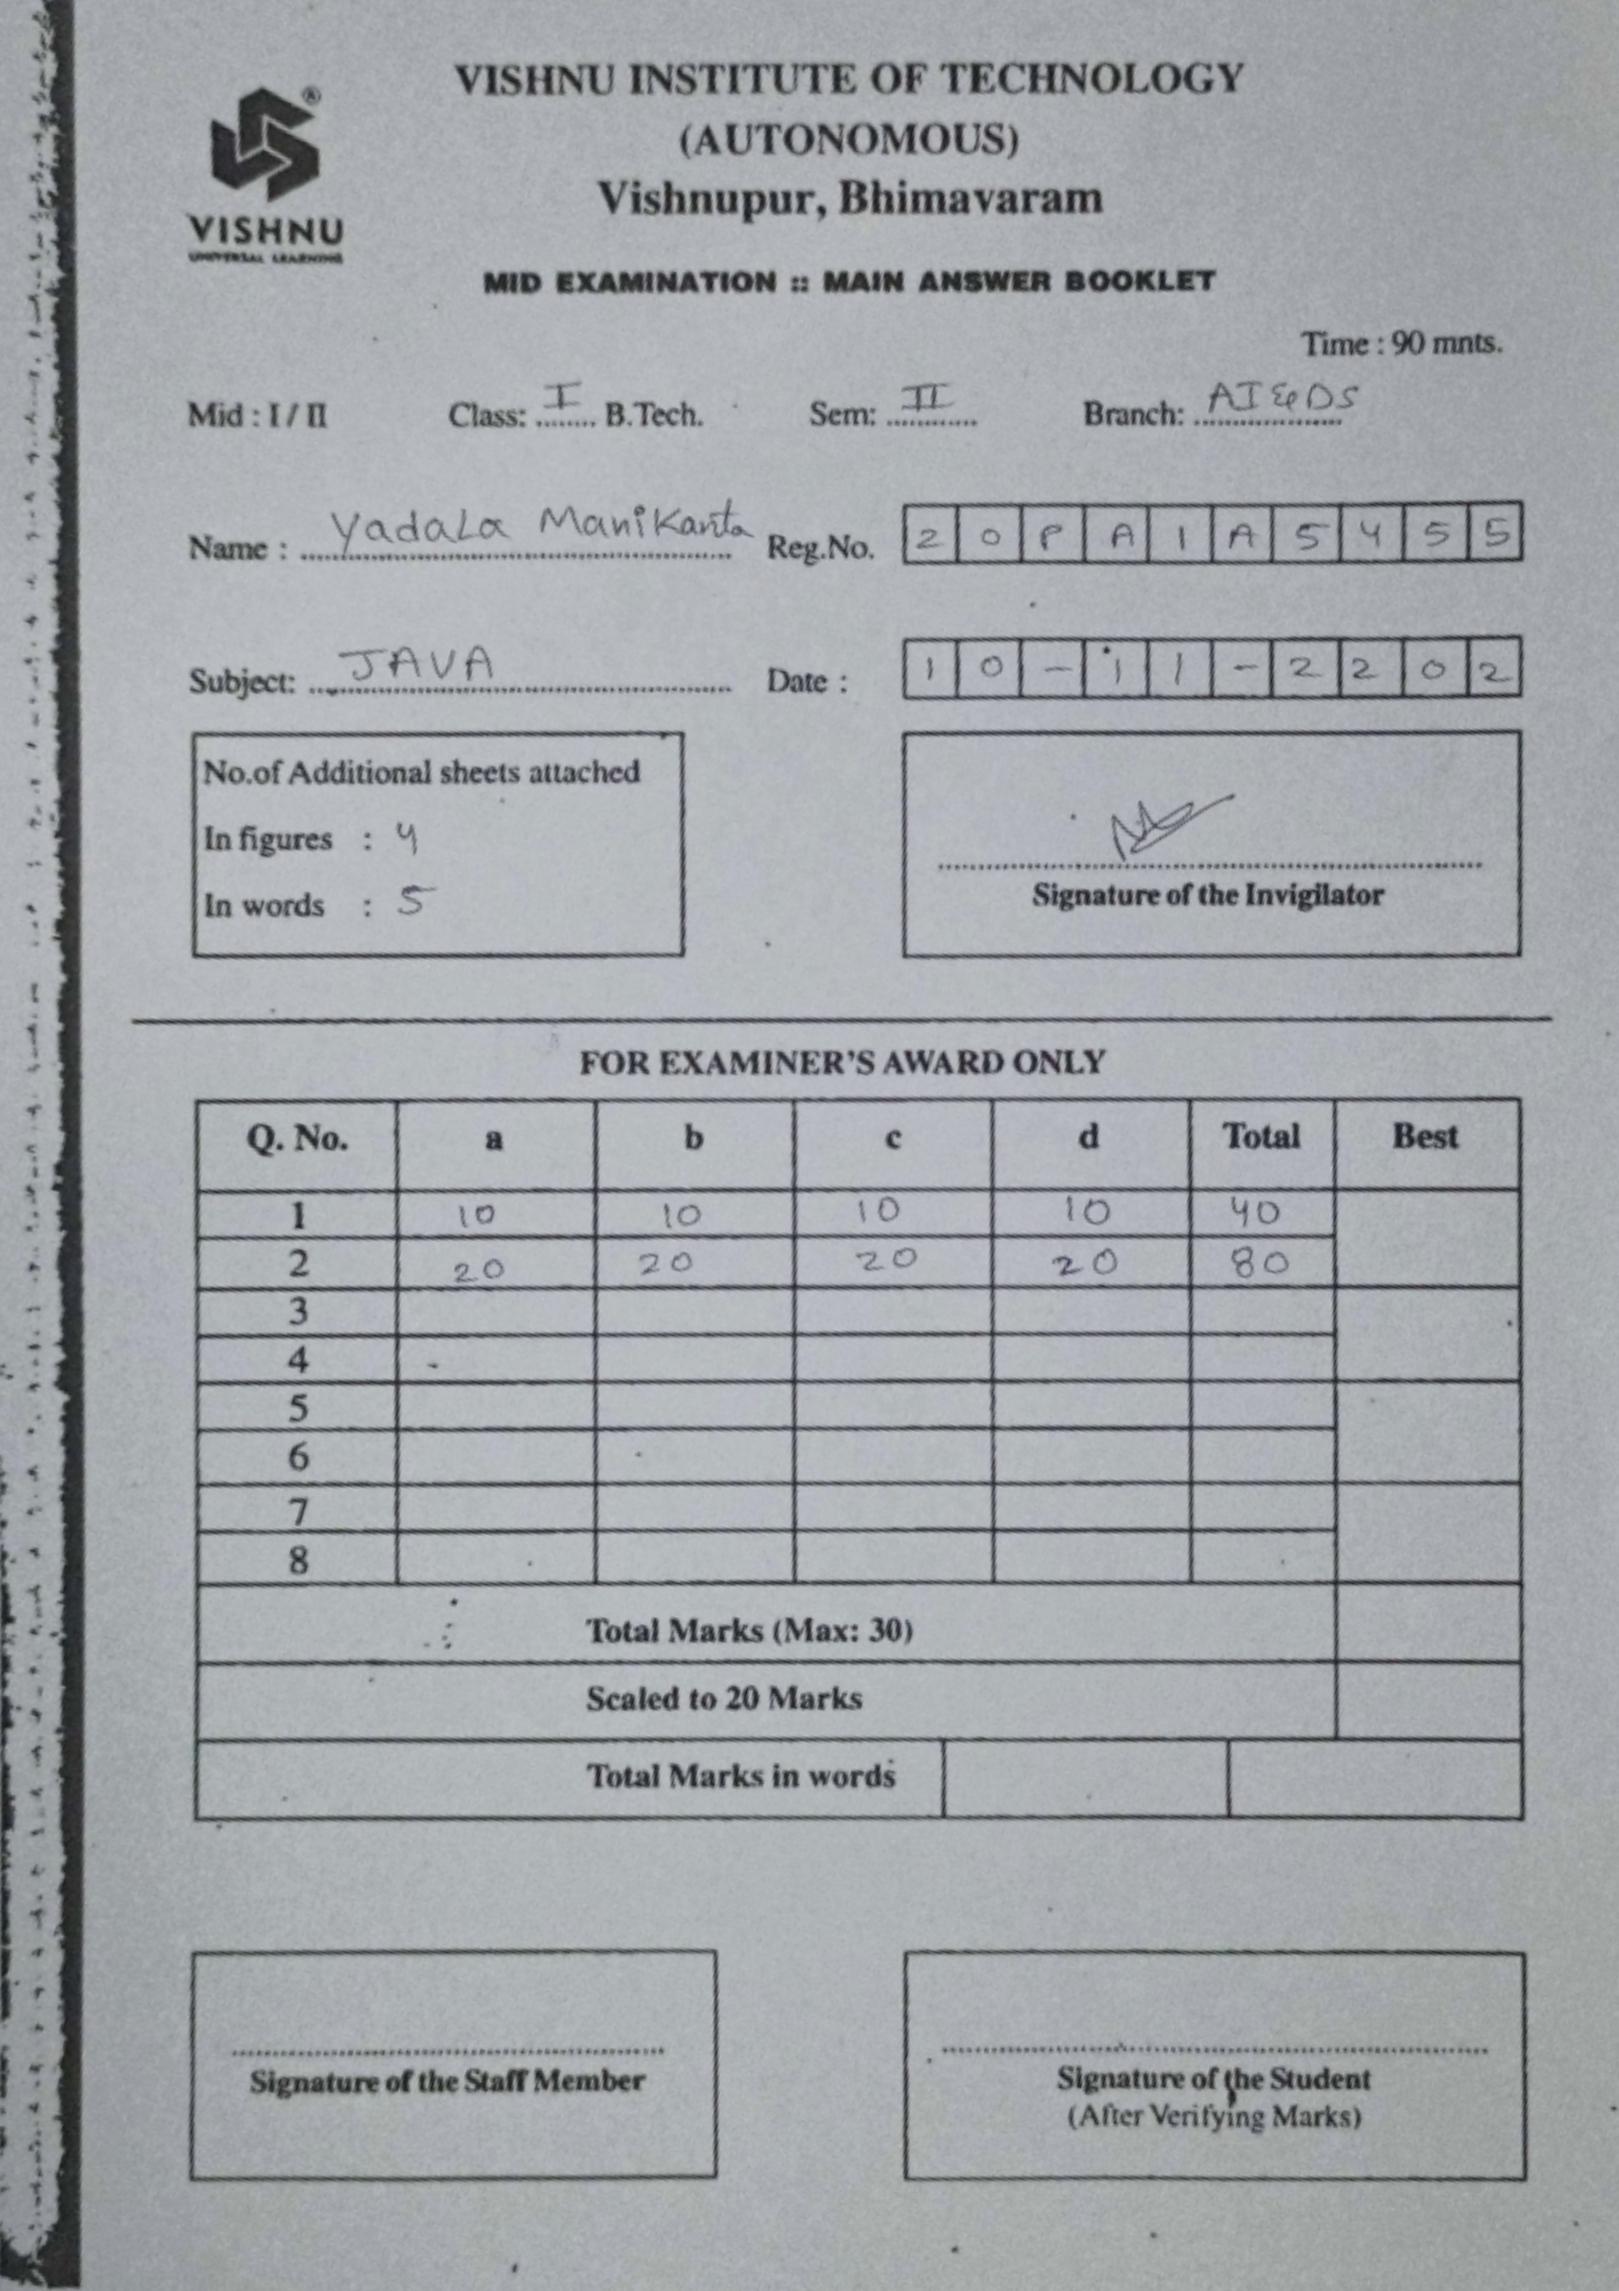 VISHNU INSTITUTE OF TECHNOLOGY
(AUTONOMOUS)
Vishnupur, Bhimavaram
®
VISHNU
UNIVERSAL LEARNING
MID EXAMINATION :: MAIN ANSWER BOOKLET
Time : 90 mnts.
Mid : I / II Class: I B.Tech. Sem: II Branch: AI&DS
Name : Yadala Manikanta Reg.No. 2 0 P A 1 A 5 4 5 5
Subject: JAVA Date : 1 0 - 1 1 - 2 2 0 2
No.of Additional sheets attached
In figures : 4
In words : 5
Signature of the Invigilator
FOR EXAMINER'S AWARD ONLY
Q. No. a b c d Total Best
1 10 10 10 10 40
2 20 20 20 20 80
3
4
5
6
7
8
Total Marks (Max: 30)
Scaled to 20 Marks
Total Marks in words
Signature of the Staff Member
Signature of the Student
(After Verifying Marks)